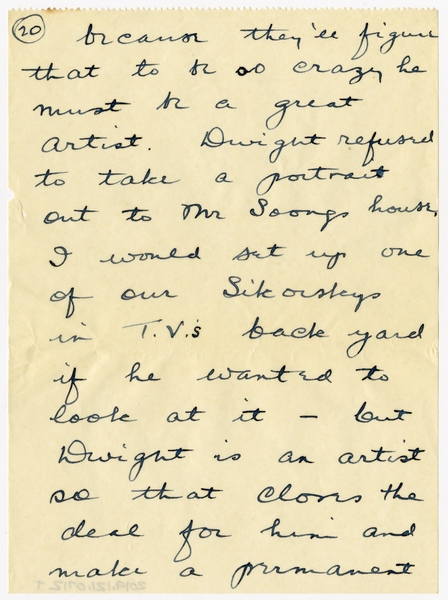 20
because they'll figure
that to be so crazy he
must be a great
artist. Dwight refused
to take a portrait
out to Mr Soongs house,
I would set up one
of our Sikorskys
in T.V.'s back yard
if he wanted to
look at it – but
Dwight is an artist
so that closes the
deal for him and
make a permanent